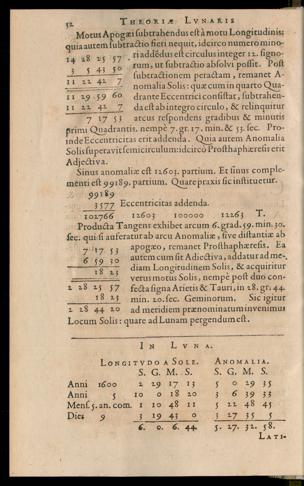 52 THEORIÆ LVNARIS
Motus Apogæi subtrahendus est à motu Longitudinis:
quia autem subtractio fieri nequit, idcirco numero mino-
14 28 25 57 ri addēdus est circulus integer 12. signo-
3 5 43 50 rum, ut subtractio absolvi possit. Post
subtractionem peractam, remanet A-
11 22 42 7 nomalia Solis: quæ cum in quarto Qua-
11 29 59 60 drante Eccentrici consistat, subtrahen-
11 22 42 7 da est ab integro circulo, & relinquitur
7 17 53 arcus respondens gradibus & minutis
primi Quadrantis. nempè 7. gr. 17. min. & 53. sec. Pro-
inde Eccentricitas erit addenda. Quia autem Anomalia
Solis superavit semicirculum: idcircò Prosthaphæresis erit
Adjectiva.
Sinus anomaliæ est 12603. partium. Et sinus comple-
menti est 99189. partium. Quare praxis sic instituetur.
99189
3577 Eccentricitas addenda.
102766 12603 100000 12263 T.
Producta Tangens exhibet arcum 6. grad. 59. min. 30.
sec. qui si auferatur ab arcu Anomaliæ, sive distantiæ ab
7 17 53 apogæo, remanet Prosthaphæresis. Ea
6 59 30 autem cum sit Adjectiva, addatur ad me-
18 23 diam Longitudinem Solis, & acquiritur
verus motus Solis, nempè post duo con-
2 28 25 57 fecta signa Arietis & Tauri, in 28. gr. 44.
18 23 min. 20. sec. Geminorum. Sic igitur
2 28 44 20 ad meridiem prænominatum invenimus
Locum Solis: quare ad Lunam pergendum est.
IN LVNA.
LONGITVDO A SOLE. ANOMALIA.
S. G. M. S. S. G. M. S.
Anni 1600 2 29 17 13 5 0 29 35
Anni 5 10 0 18 20 3 6 39 33
Mens. 5. an. com. 1 10 48 11 5 22 48 45
Dies 9 3 19 43 0 3 27 35 5
6. 0. 6. 44. 5. 27. 32. 58.
LATI-